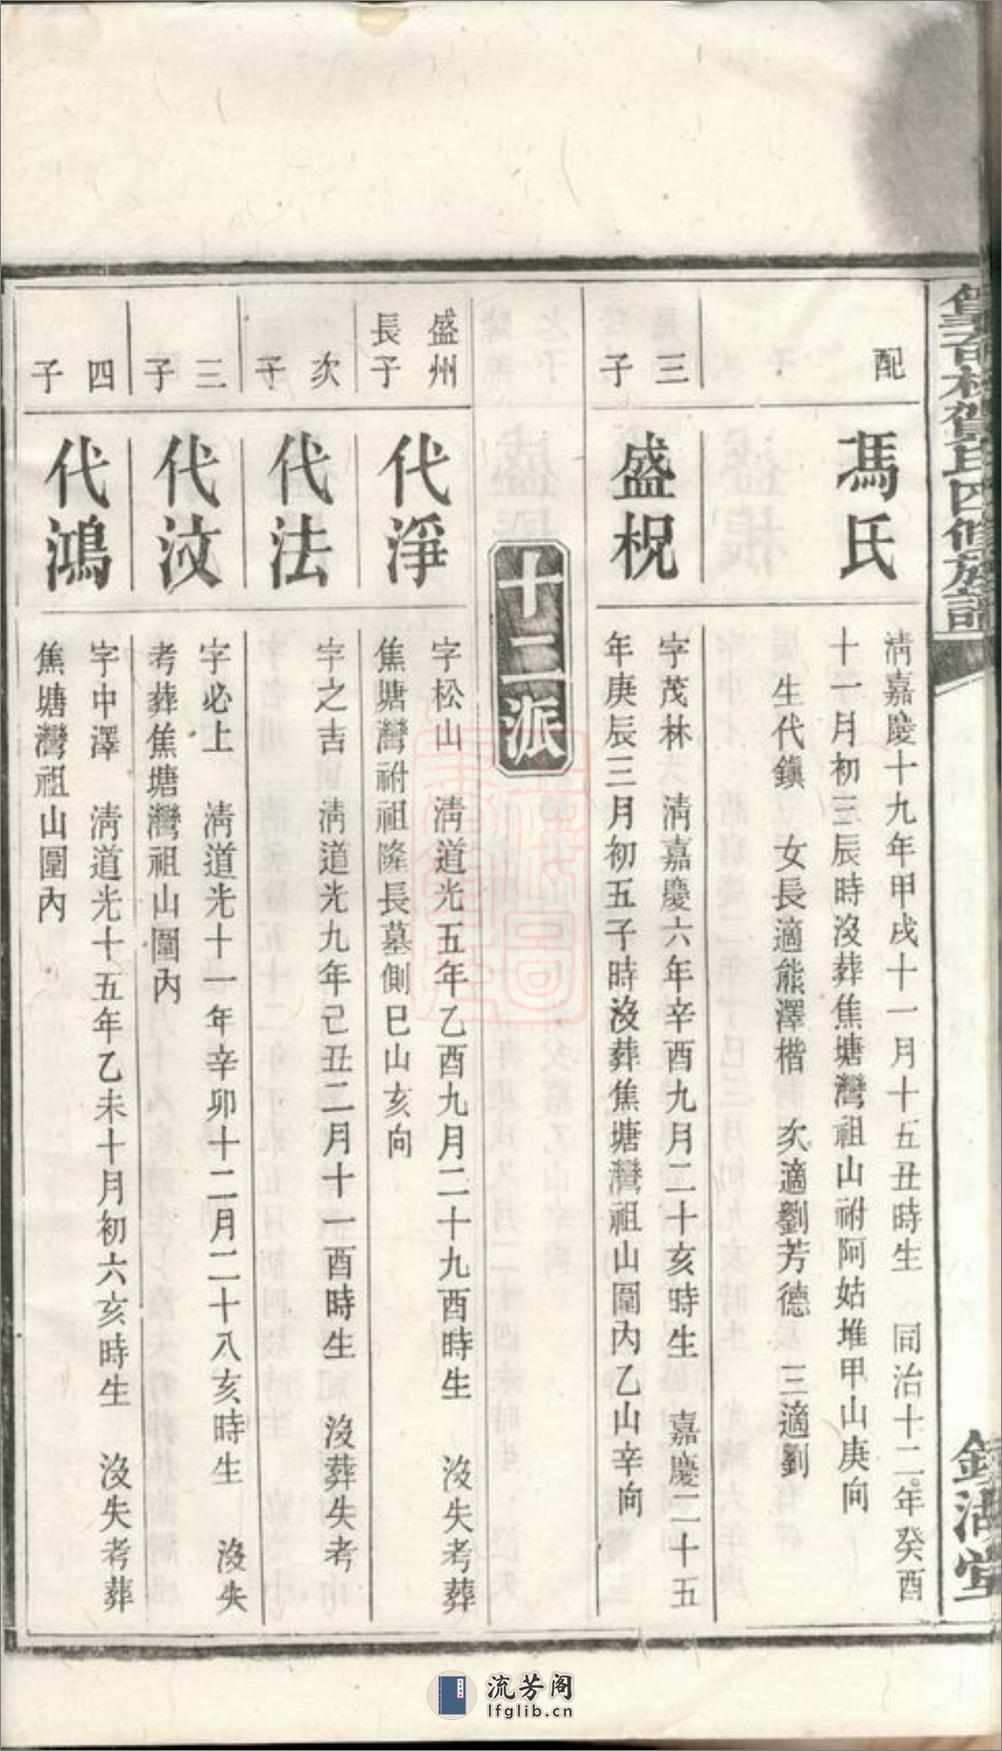 配
馮氏
清嘉慶十九年甲戌十一月十五丑時生　同治十二年癸酉
十一月初三辰時沒葬焦塘灣祖山祔阿姑堆甲山庚向
生代鎮　女長適熊澤楷　次適劉芳德　三適劉
三子
盛柷
字茂林　清嘉慶六年辛酉九月二十亥時生　嘉慶二十五
年庚辰三月初五子時沒葬焦塘灣祖山圍內乙山辛向
十二派
盛州長子
代淨
字松山　清道光五年乙酉九月二十九酉時生　沒失考葬
焦塘灣祔祖隆長墓側巳山亥向
次子
代法
字之吉　清道光九年己丑二月十一酉時生　沒葬失考
三子
代汶
字必上　清道光十一年辛卯十二月二十八亥時生　沒失
考葬焦塘灣祖山圍內
四子
代鴻
字中澤　清道光十五年乙未十月初六亥時生　沒失考葬
焦塘灣祖山圍內
流芳阁
lfglib.cn